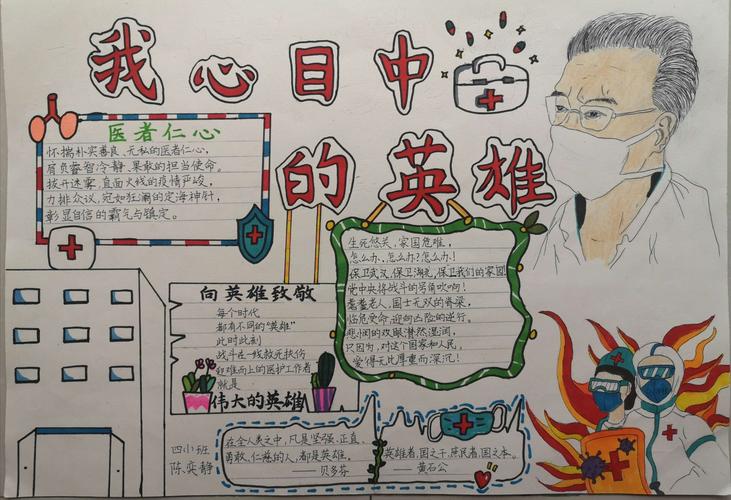 我心目中
的英雄
医者仁心
怀揣朴实善良、无私的医者仁心,
肩负睿智冷静、果敢的担当使命。
拨开迷雾,直面火线的疫情严峻,
力排众议,宛如狂澜的定海神针,
彰显自信的霸气与镇定。
生死悠关、家国危难,
怎么办,怎么办?怎么办!
保卫武汉,保卫湖北,保卫我们的家园
党中央将战斗的号角吹响!
耄耋老人,国士无双的脊梁,
临危受命,迎向凶险的逆行。
悲悯的双眼潸然湿润,
只因为,对这个国家和人民,
爱得无比厚重而深沉!
向英雄致敬
每个时代
都有不同的“英雄”
此时此刻
战斗在一线救死扶伤
和难而上的医护工作者
就是
伟大的英雄
四小班
陈奕静
在全人类之中,凡是坚强、正直、
勇敢、仁慈的人,都是英雄。
——贝多芬
英雄者,国之干,庶民者,国之本。
——黄石公